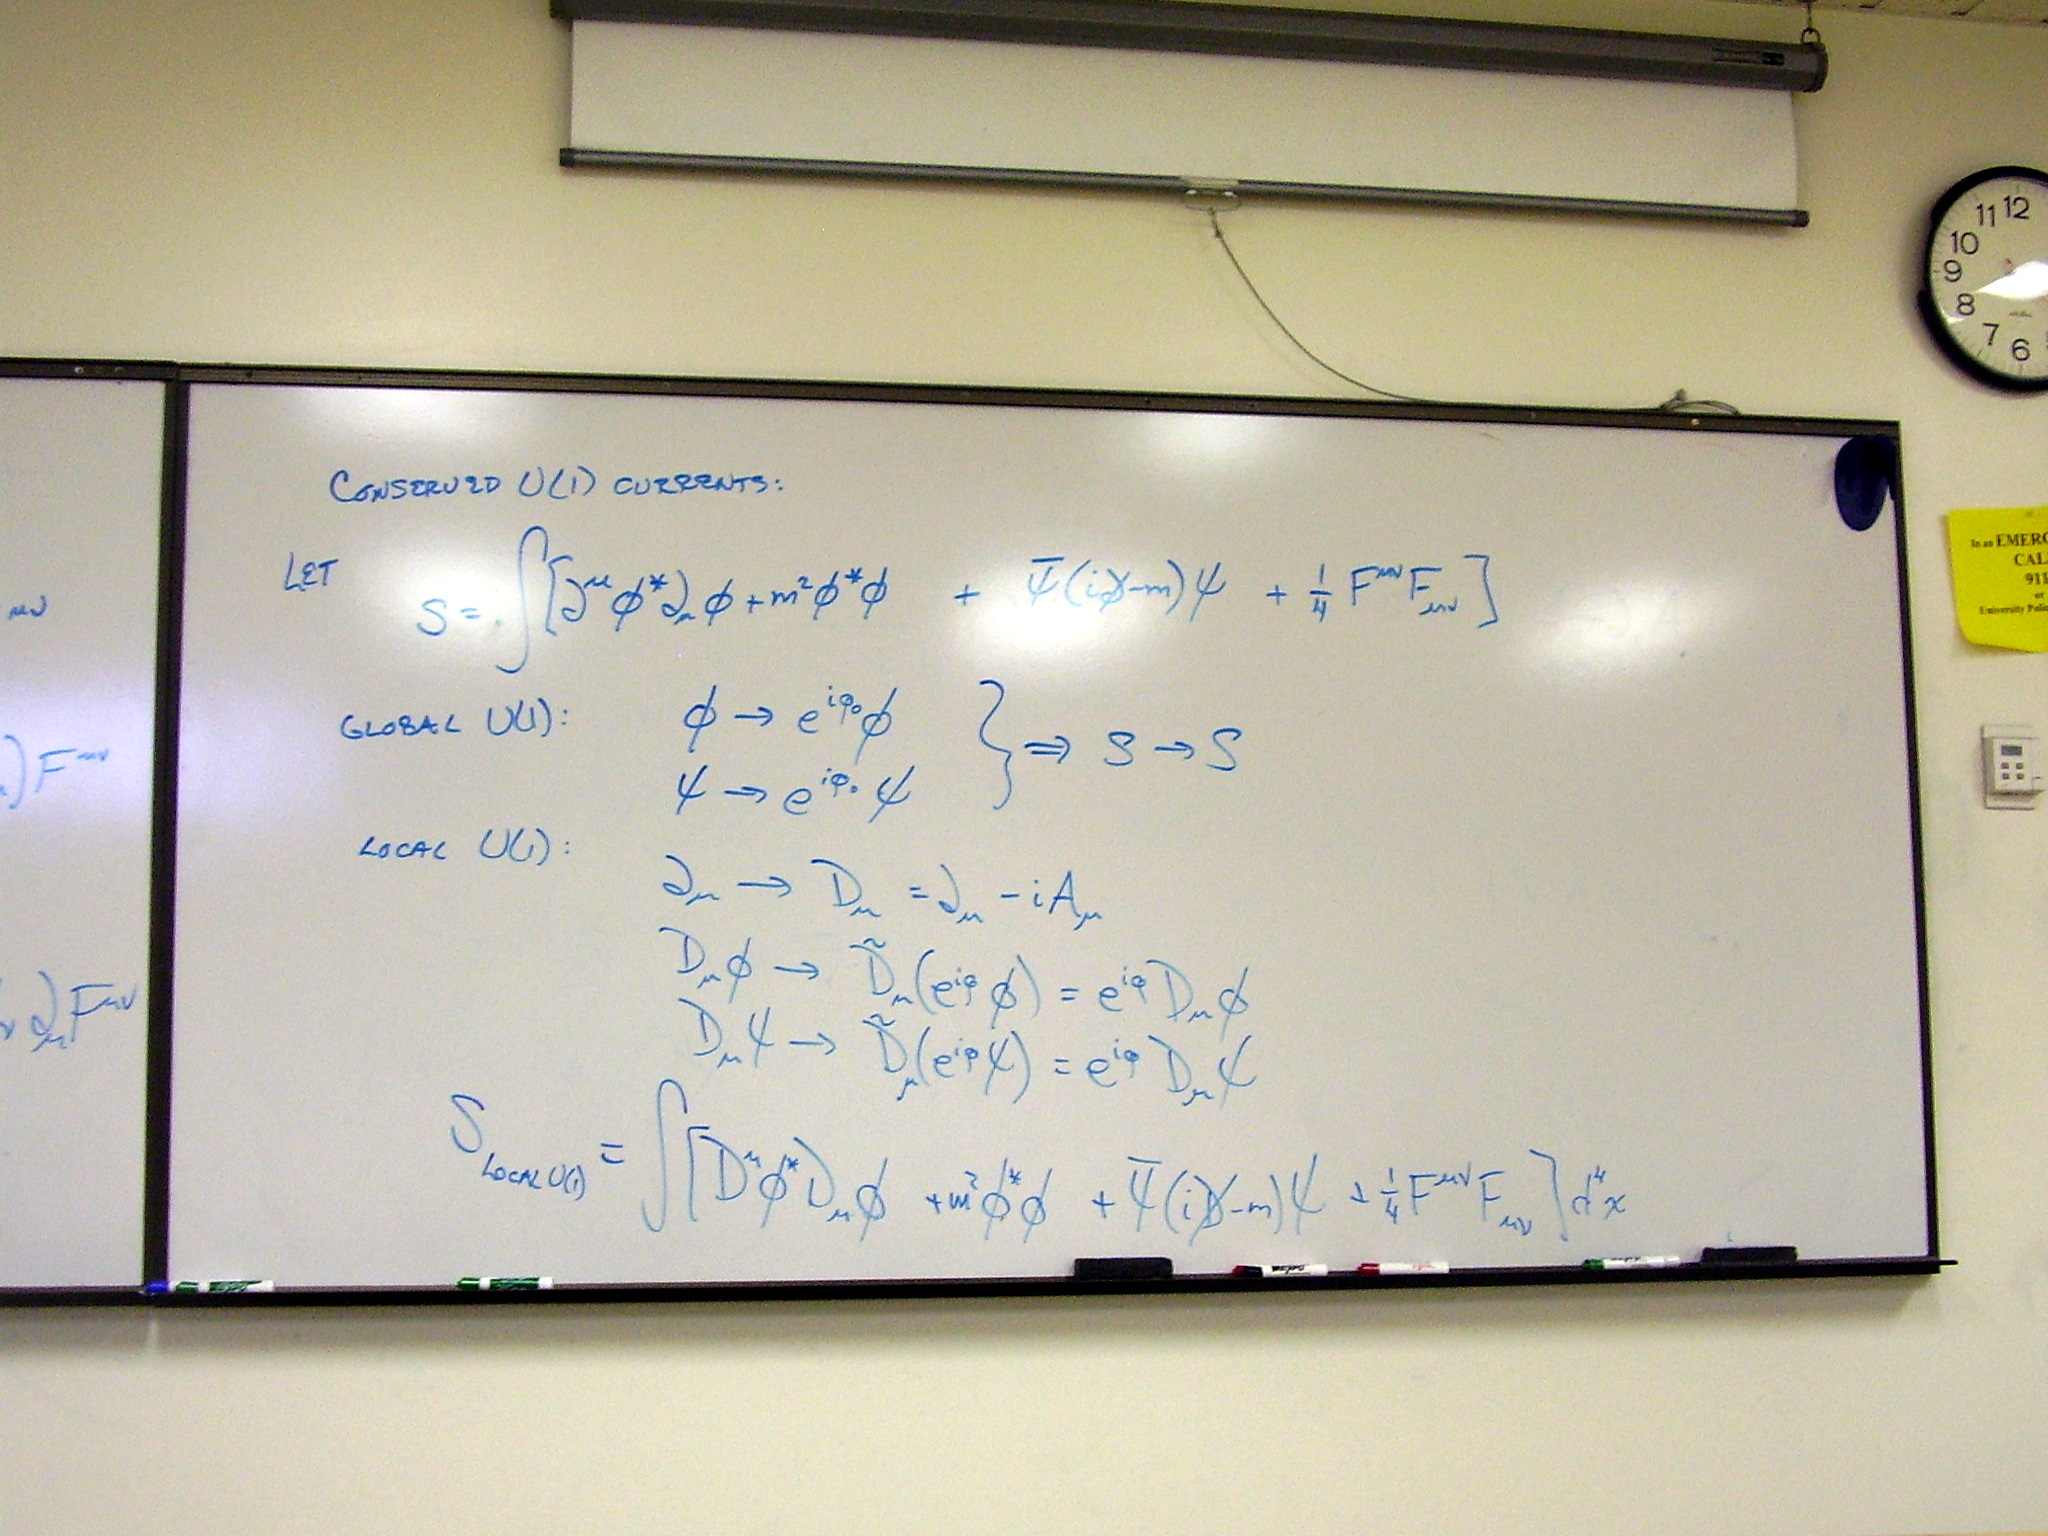 μν
)F^μν
∂_μF^μν
CONSERVED U(1) CURRENTS:
LET S = ∫[∂^μ φ* ∂_μ φ + m² φ*φ + ψ̄(i∂̸-m)ψ + 1/4 F^μν F_μν]
GLOBAL U(1): φ → e^iφ₀ φ
ψ → e^iφ₀ ψ } ⇒ S → S
LOCAL U(1):
∂_μ → D_μ = ∂_μ - iA_μ
D_μφ → D̃_μ(e^iφ φ) = e^iφ D_μφ
D_μψ → D̃_μ(e^iφ ψ) = e^iφ D_μψ
S_LOCAL U(1) = ∫[D^μφ* D_μφ + m²φ*φ + ψ̄(iD̸-m)ψ + 1/4 F^μν F_μν] d⁴x
11 12
10
9
8
7 6
In an
CAL
911
or
University